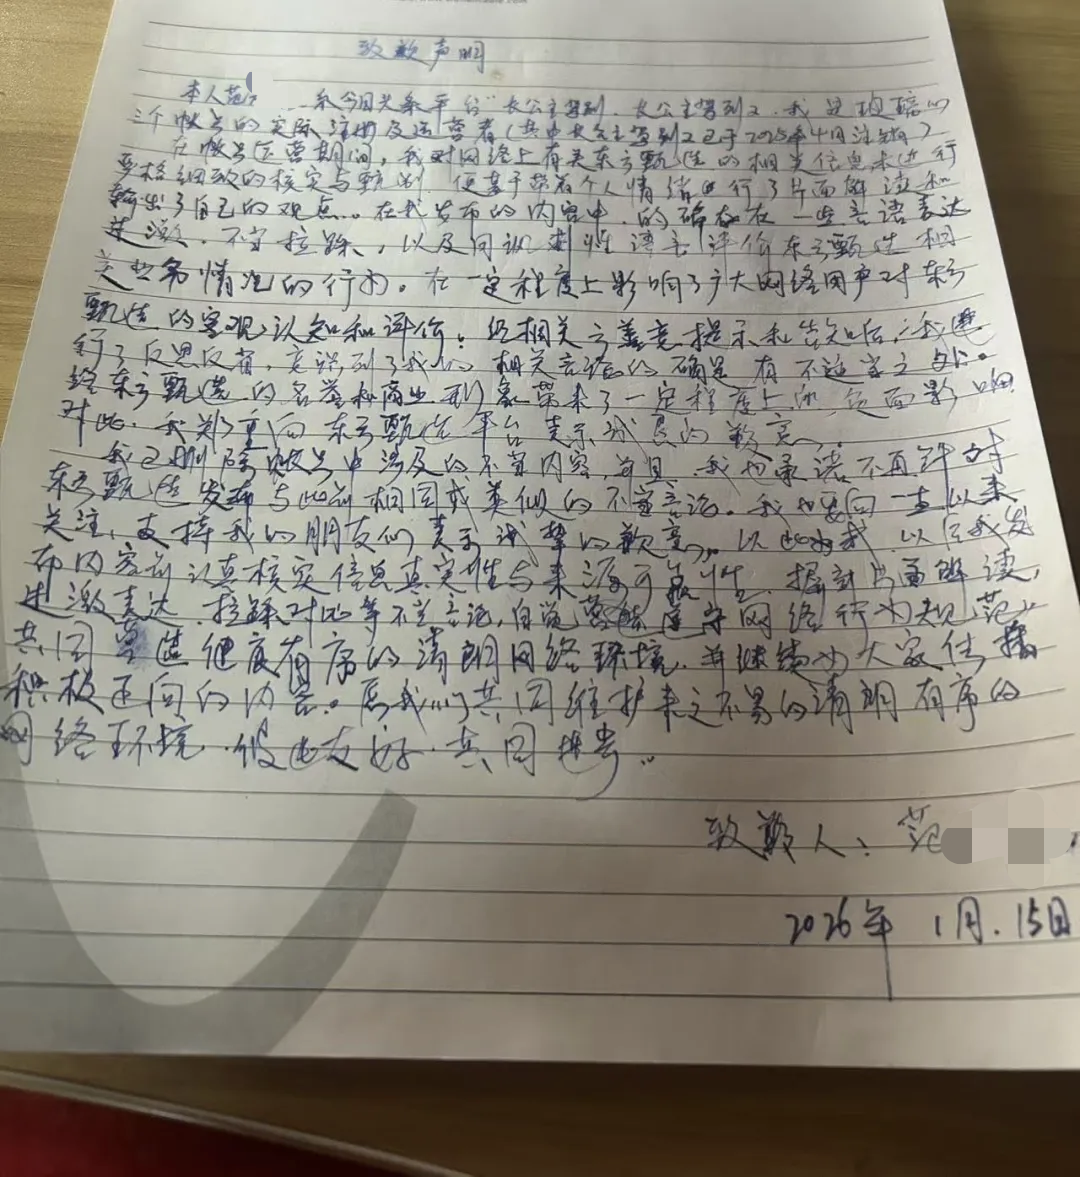 致歉声明
本人范 系今日头条平台“长公主驾到、长公主驾到2、我是
三个帐号的实际注册及运营者(其中长公主驾到2已于2025年4月注销)
在帐号运营期间,我对网络上有关东方甄选的相关信息未进行
严格细致的核实与甄别,便基于带着个人情绪进行了片面解读和
输出了自己的观点。在我发布的内容中,的确存在一些言语表达
过激、不当拉踩,以及用讽刺性语言评价东方甄选相
关业务情况的行为。在一定程度上影响了广大网络用户对东方
甄选的客观认知和评价。经相关方善意提示和告知后,我进
行了反思反省,意识到了我的相关言论的确是有不适当之处。
给东方甄选的名誉和商业形象带来了一定程度上的负面影响
对此,我郑重向东方甄选平台表示诚恳的歉意。
我已删除帐号中涉及的不当内容,并且,我也承诺不再针对
东方甄选发布与此前相同或类似的不当言论。我也要向一直以来
关注、支持我的朋友们表示诚挚的歉意。以此为戒,以后我发
布内容前认真核实信息真实性与来源可靠性,摒弃片面解读,
过激表达、拉踩对比等不当言论,自觉遵守网络行为规范。
共同营造健康有序的清朗网络环境,并继续为大家传播
积极正向的内容。愿我们共同维护来之不易的清朗有序的
网络环境,彼此友好,共同进步。
致歉人:范
2026年1月.15日